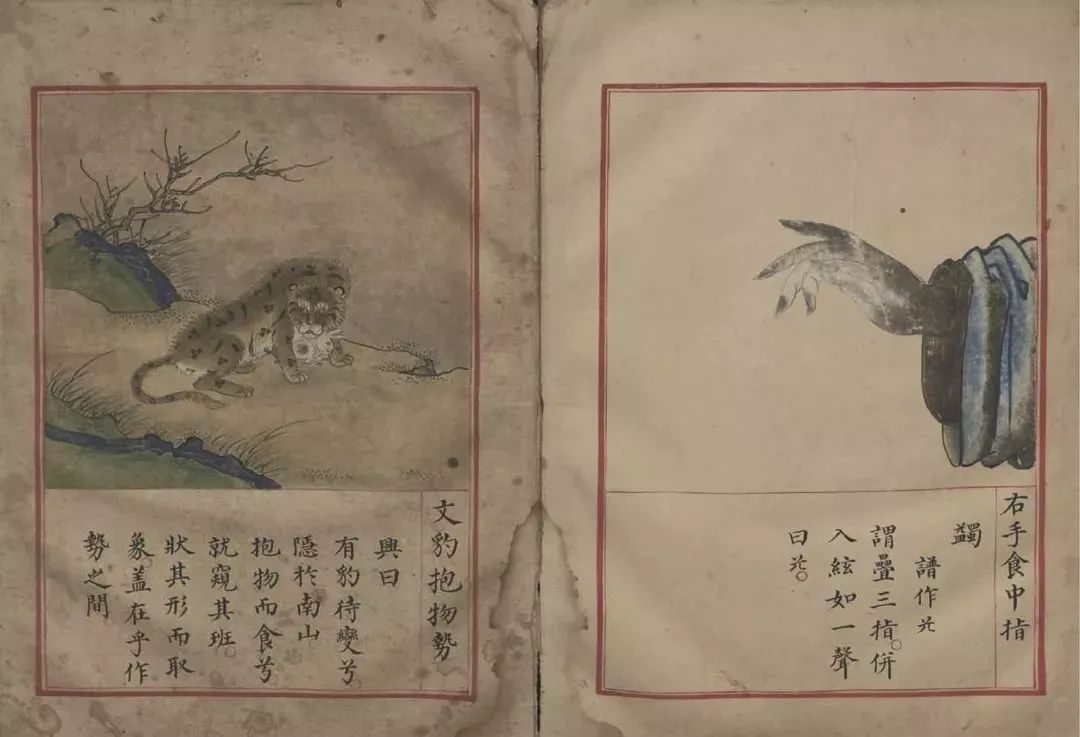 右手食中指
蠲
譜作
謂疊三指。併
入絃如一聲
曰
文豹抱物勢
興曰
有豹待變兮。
隱扵南山
抱物而食兮。
就窺其班。
狀其形而取
象。盖在乎作
勢之間